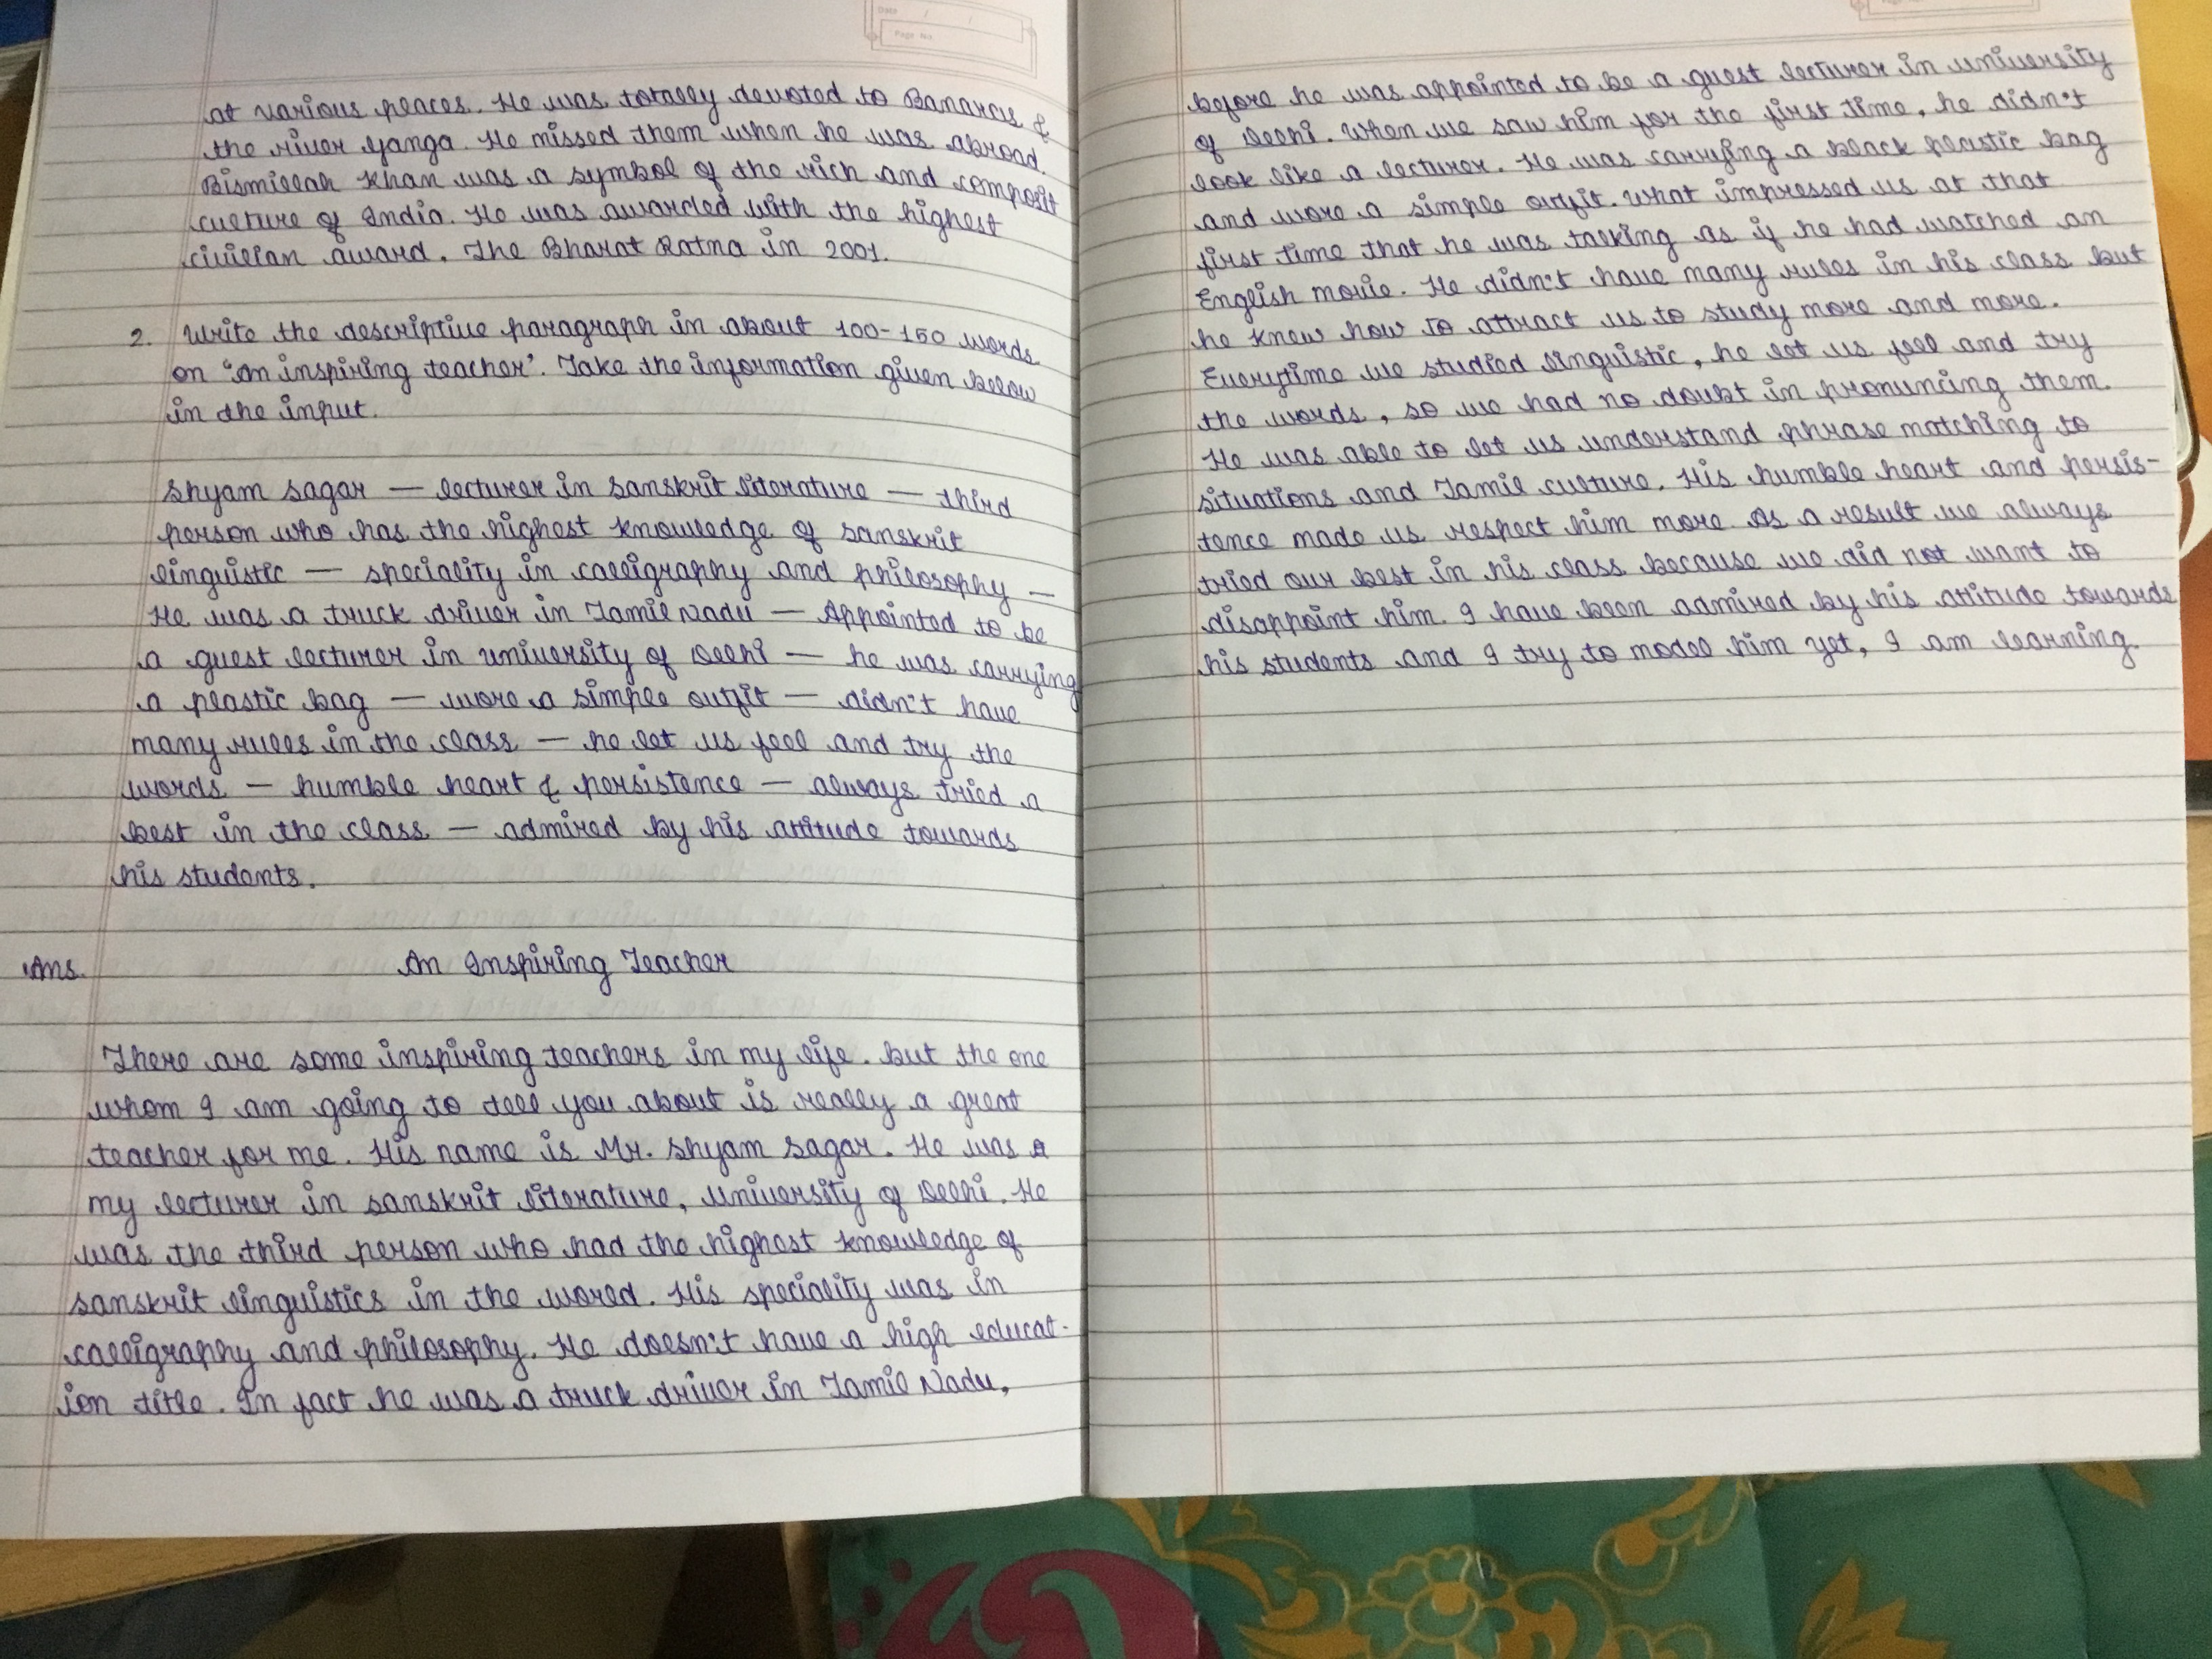 Date / /
Page No.
at various places. He was totally devoted to Banarus &
the river Ganga. He missed them when he was abroad.
Bismillah Khan was a symbol of the rich and composit
culture of India. He was awarded with the highest
civilian award. The Bharat Ratna in 2001.
2. Write the descriptive paragraph in about 100-150 words
on "An inspiring teacher". Take the information given below
in the input.
Shyam Sagar — lecturer in sanskrit literature — third
person who has the highest knowledge of sanskrit
linguistic — speciality in calligraphy and philosophy —
He was a truck driver in Tamil Nadu — Appointed to be
a guest lecturer in university of Delhi — he was carrying
a plastic bag — wore a simple outfit — didn't have
many rules in the class — he let us feel and try the
words — humble heart & persistence — always tried a
best in the class — admired by his attitude towards
his students.
Ans. An Inspiring Teacher
There are some inspiring teachers in my life. but the one
whom I am going to tell you about is really a great
teacher for me. His name is Mr. Shyam Sagar. He was
my lecturer in sanskrit literature, university of Delhi. He
was the third person who had the highest knowledge of
sanskrit linguistics in the world. His speciality was in
calligraphy and philosophy. He doesn't have a high educat-
ion title. In fact he was a truck driver in Tamil Nadu,
before he was appointed to be a guest lecturer in university
of Delhi. When we saw him for the first time, he didn't
look like a lecturer. He was carrying a black plastic bag
and wore a simple outfit. What impressed us at that
first time that he was talking as if he had watched an
English movie. He didn't have many rules in his class but
he knew how to attract us to study more and more.
Everytime we studied linguistic, he let us feel and try
the words, so we had no doubt in pronuncing them.
He was able to let us understand phrase matching to
situations and Tamil culture. His humble heart and persis-
tence made us respect him more. As a result we always
tried our best in his class because we did not want to
disappoint him. I have been admired by his attitude towards
his students and I try to model him yet, I am learning.